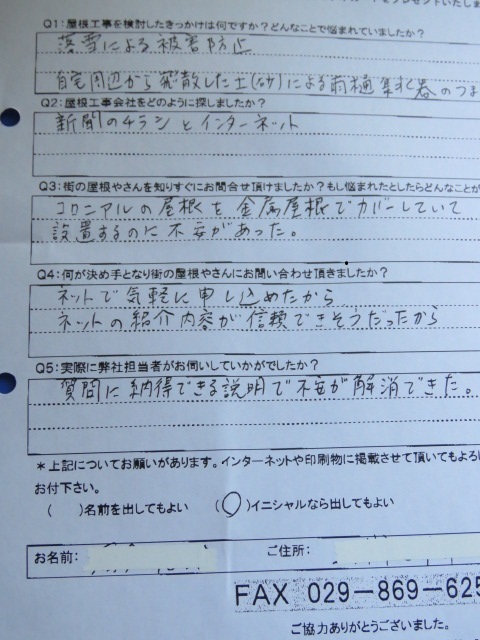 Q1:屋根工事を検討したきっかけは何ですか?どんなことで悩まれていましたか?
落雪による被害防止
自宅周辺から飛散した土(砂)による雨樋集すい器のつま
Q2:屋根工事会社をどのように探しましたか?
新聞のチラシとインターネット
Q3:街の屋根やさんを知りすぐにお問合せ頂けましたか?もし悩まれたとしたらどんなことが
コロニアルの屋根を金属屋根でカバーしていて
設置するのに不安があった。
Q4:何が決め手となり街の屋根やさんにお問い合わせ頂きましたか?
ネットで気軽に申し込めたから
ネットの紹介内容が信頼できそうだったから
Q5:実際に弊社担当者がお伺いしていかがでしたか?
質問に納得できる説明で不安が解消できた。
*上記についてお願いがあります。インターネットや印刷物に掲載させて頂いてもよろ
お付下さい。
( )名前を出してもよい (○)イニシャルなら出してもよい
お名前: ご住所:
FAX 029-869-625
ご協力ありがとうございました。